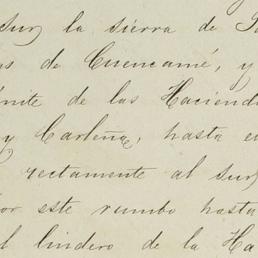 Sur la sierra de
as de Cuencamé, y
ímite de las Hacienda
y Carleña, hasta e
rectamente al sur
or este rumbo hasta
l lindero de la Ha